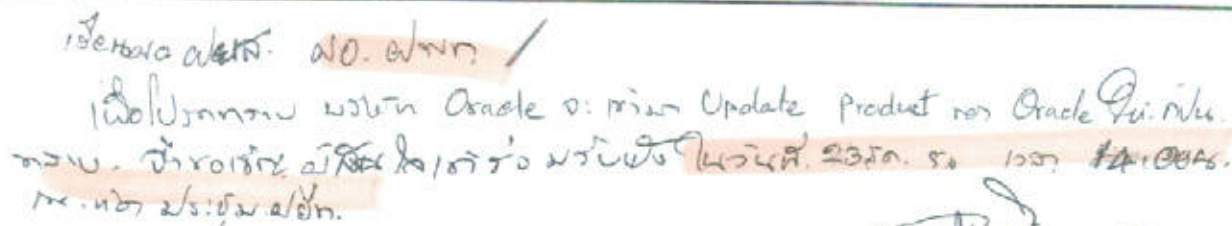 เรียน ผอ. ฝพท. /
เพื่อโปรดทราบ บริษัท Oracle จะเข้ามา Update Product ของ Oracle ให้
ทราบ. จึงขอเชิญผู้สนใจเข้าร่วมรับฟัง ในวันที่ 23 ธค. 50 เวลา 14.00น.
ณ. ห้อง ประชุม